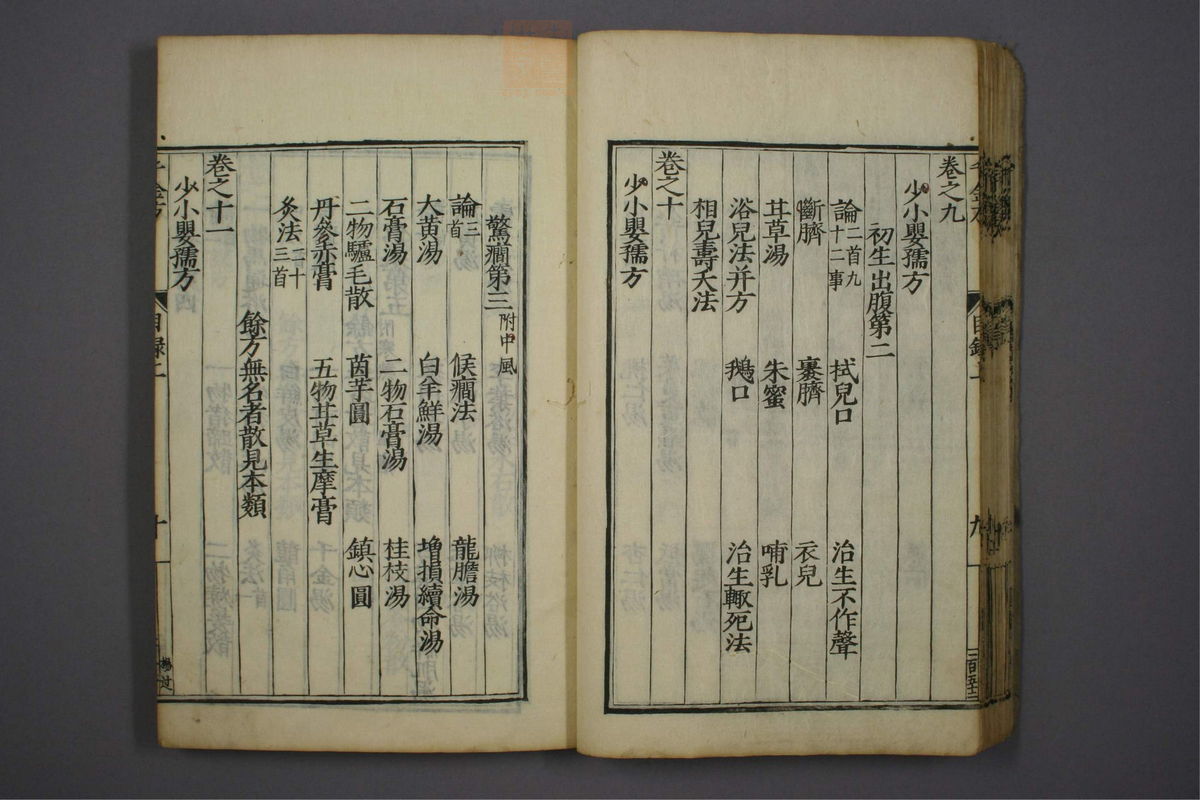 卷之九
少小嬰孺方
初生出腹第二
論二首九十二事 拭兒口 治生不作聲
斷臍 裹臍 衣兒
甘草湯 朱蜜 哺乳
浴兒法并方 鵝口 治生輙死法
相兒壽夭法
卷之十
少小嬰孺方
驚癇第三附中風
論三首 候癇法 龍膽湯
大黃湯 白羊鮮湯 增損續命湯
石膏湯 二物石膏湯 桂枝湯
二物驢毛散 茵芋圓 鎮心圓
丹參赤膏 五物甘草生摩膏
灸法二十三首
餘方無名者散見本類
卷之十一
少小嬰孺方